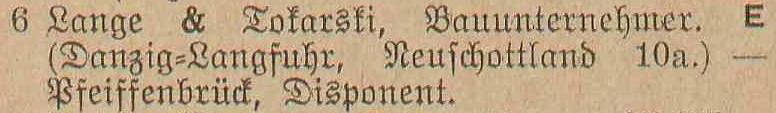 6 Lange & Tokarski, Bauunternehmer. E
(Danzig-Langfuhr, Neuschottland 10a.) —
Pfeiffenbrück, Disponent.